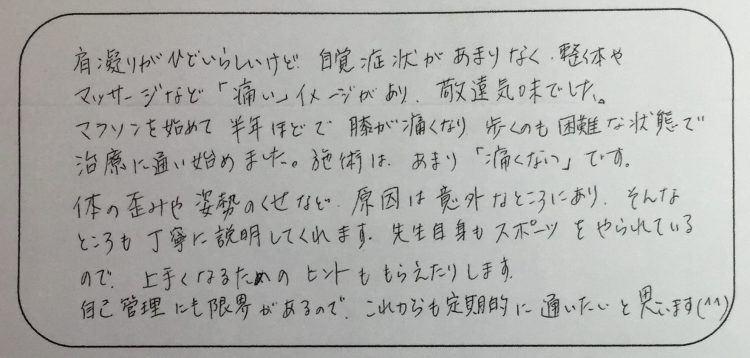 肩凝りがひどいらしいけど、自覚症状があまりなく、整体や
マッサージなど「痛い」イメージがあり、敬遠気味でした。
マラソンを始めて半年ほどで膝が痛くなり歩くのも困難な状態で
治療に通い始めました。施術は、あまり「痛くない」です。
体の歪みや姿勢のくせなど、原因は意外なところにあり、そんな
ところも丁寧に説明してくれます。先生自身もスポーツをやられている
ので、上手くなるためのヒントももらえたりします。
自己管理にも限界があるので、これからも定期的に通いたいと思います(^^)